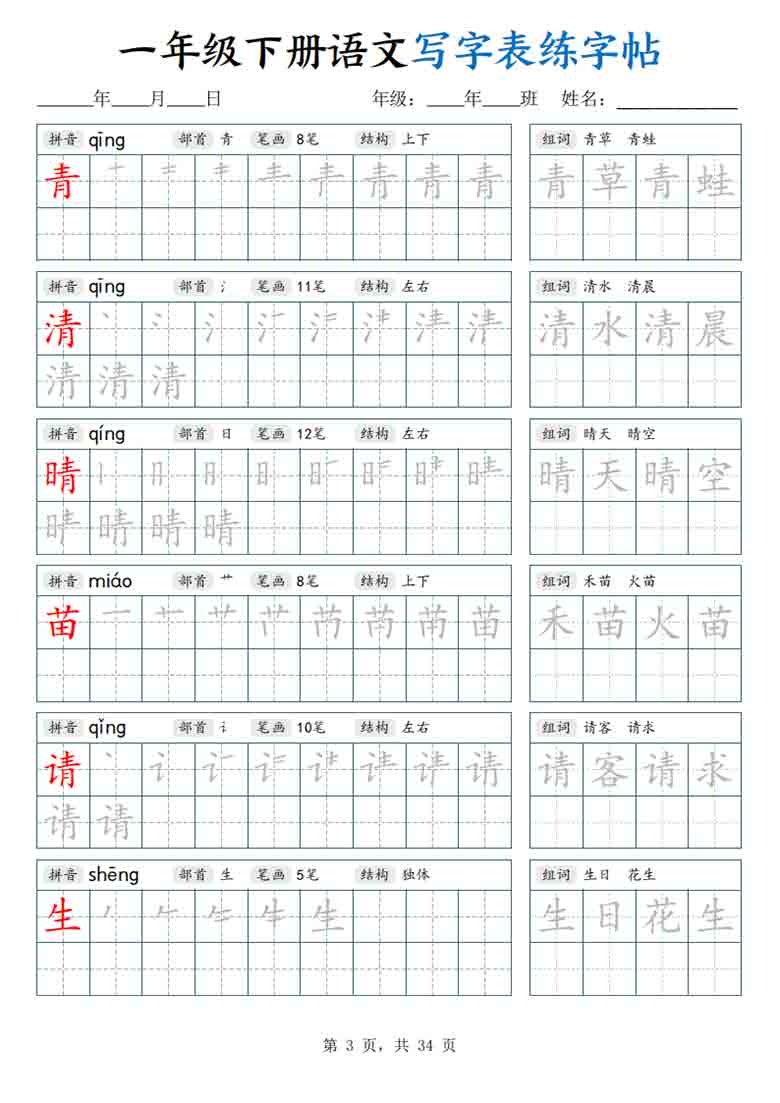 一年级下册语文写字表练字帖
年 月 日 年级： 年 班 姓名：
拼音 qīng 部首 青 笔画 8笔 结构 上下 组词 青草 青蛙
青 青 青 青 青 草 青 蛙
拼音 qīng 部首 氵 笔画 11笔 结构 左右 组词 清水 清晨
清 清 水 清 晨
清 清 清
拼音 qíng 部首 日 笔画 12笔 结构 左右 组词 晴天 晴空
晴 晴 天 晴 空
晴 晴 晴
拼音 miáo 部首 艹 笔画 8笔 结构 上下 组词 禾苗 火苗
苗 苗 禾 苗 火 苗
拼音 qǐng 部首 讠 笔画 10笔 结构 左右 组词 请客 请求
请 请 请 客 请 求
请 请
拼音 shēng 部首 生 笔画 5笔 结构 独体 组词 生日 花生
生 生 生 日 花 生
第 3 页，共 34 页